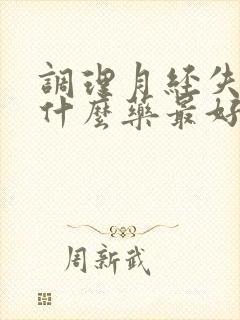 調理月经失
什麼藥最好
周新武